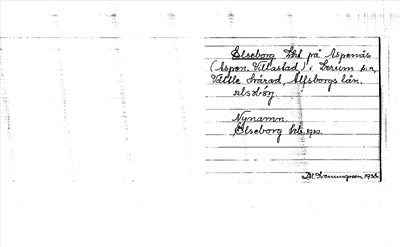 Elseborg lht på Aspenäs
(Aspen. Villastad) i Lerum s:n,
Vättle härad, Älfsborgs län.
elsəbörj.
Nynamn.
Elseborg htl. 1920.
M. Svenningsson 1938